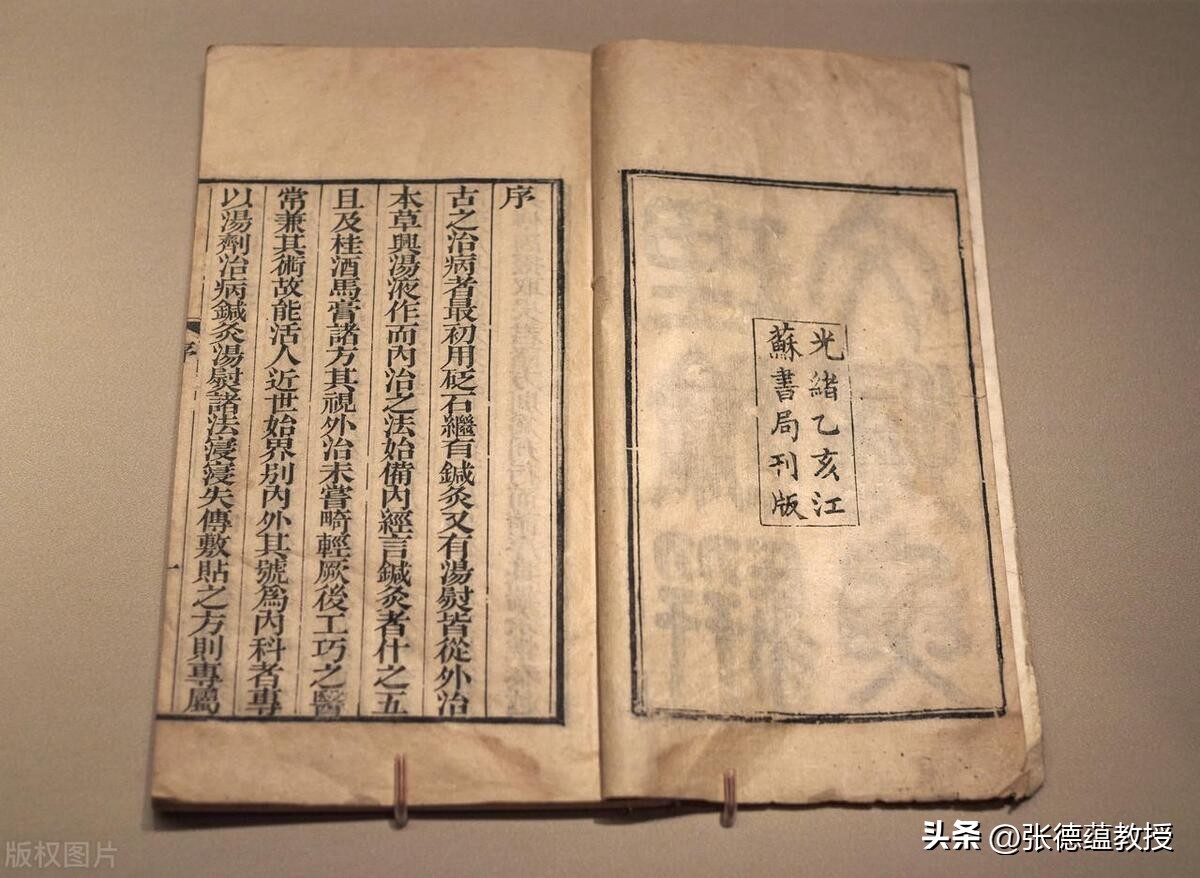 光緒乙亥江
蘇書局刊版
序
古之治病者最初用砭石繼有鍼灸又有湯熨皆從外治
本草興湯液作而內治之法始備內經言鍼灸者什之五
且及桂酒馬膏諸方其視外治未嘗畸輕厥後工巧之醫
常兼其術故能活人近世始界别內外其號爲內科者專
以湯劑治病鍼灸湯熨諸法寖寖失傳敷貼之方則專屬
序
一
版权图片
头条 @张德蕴教授